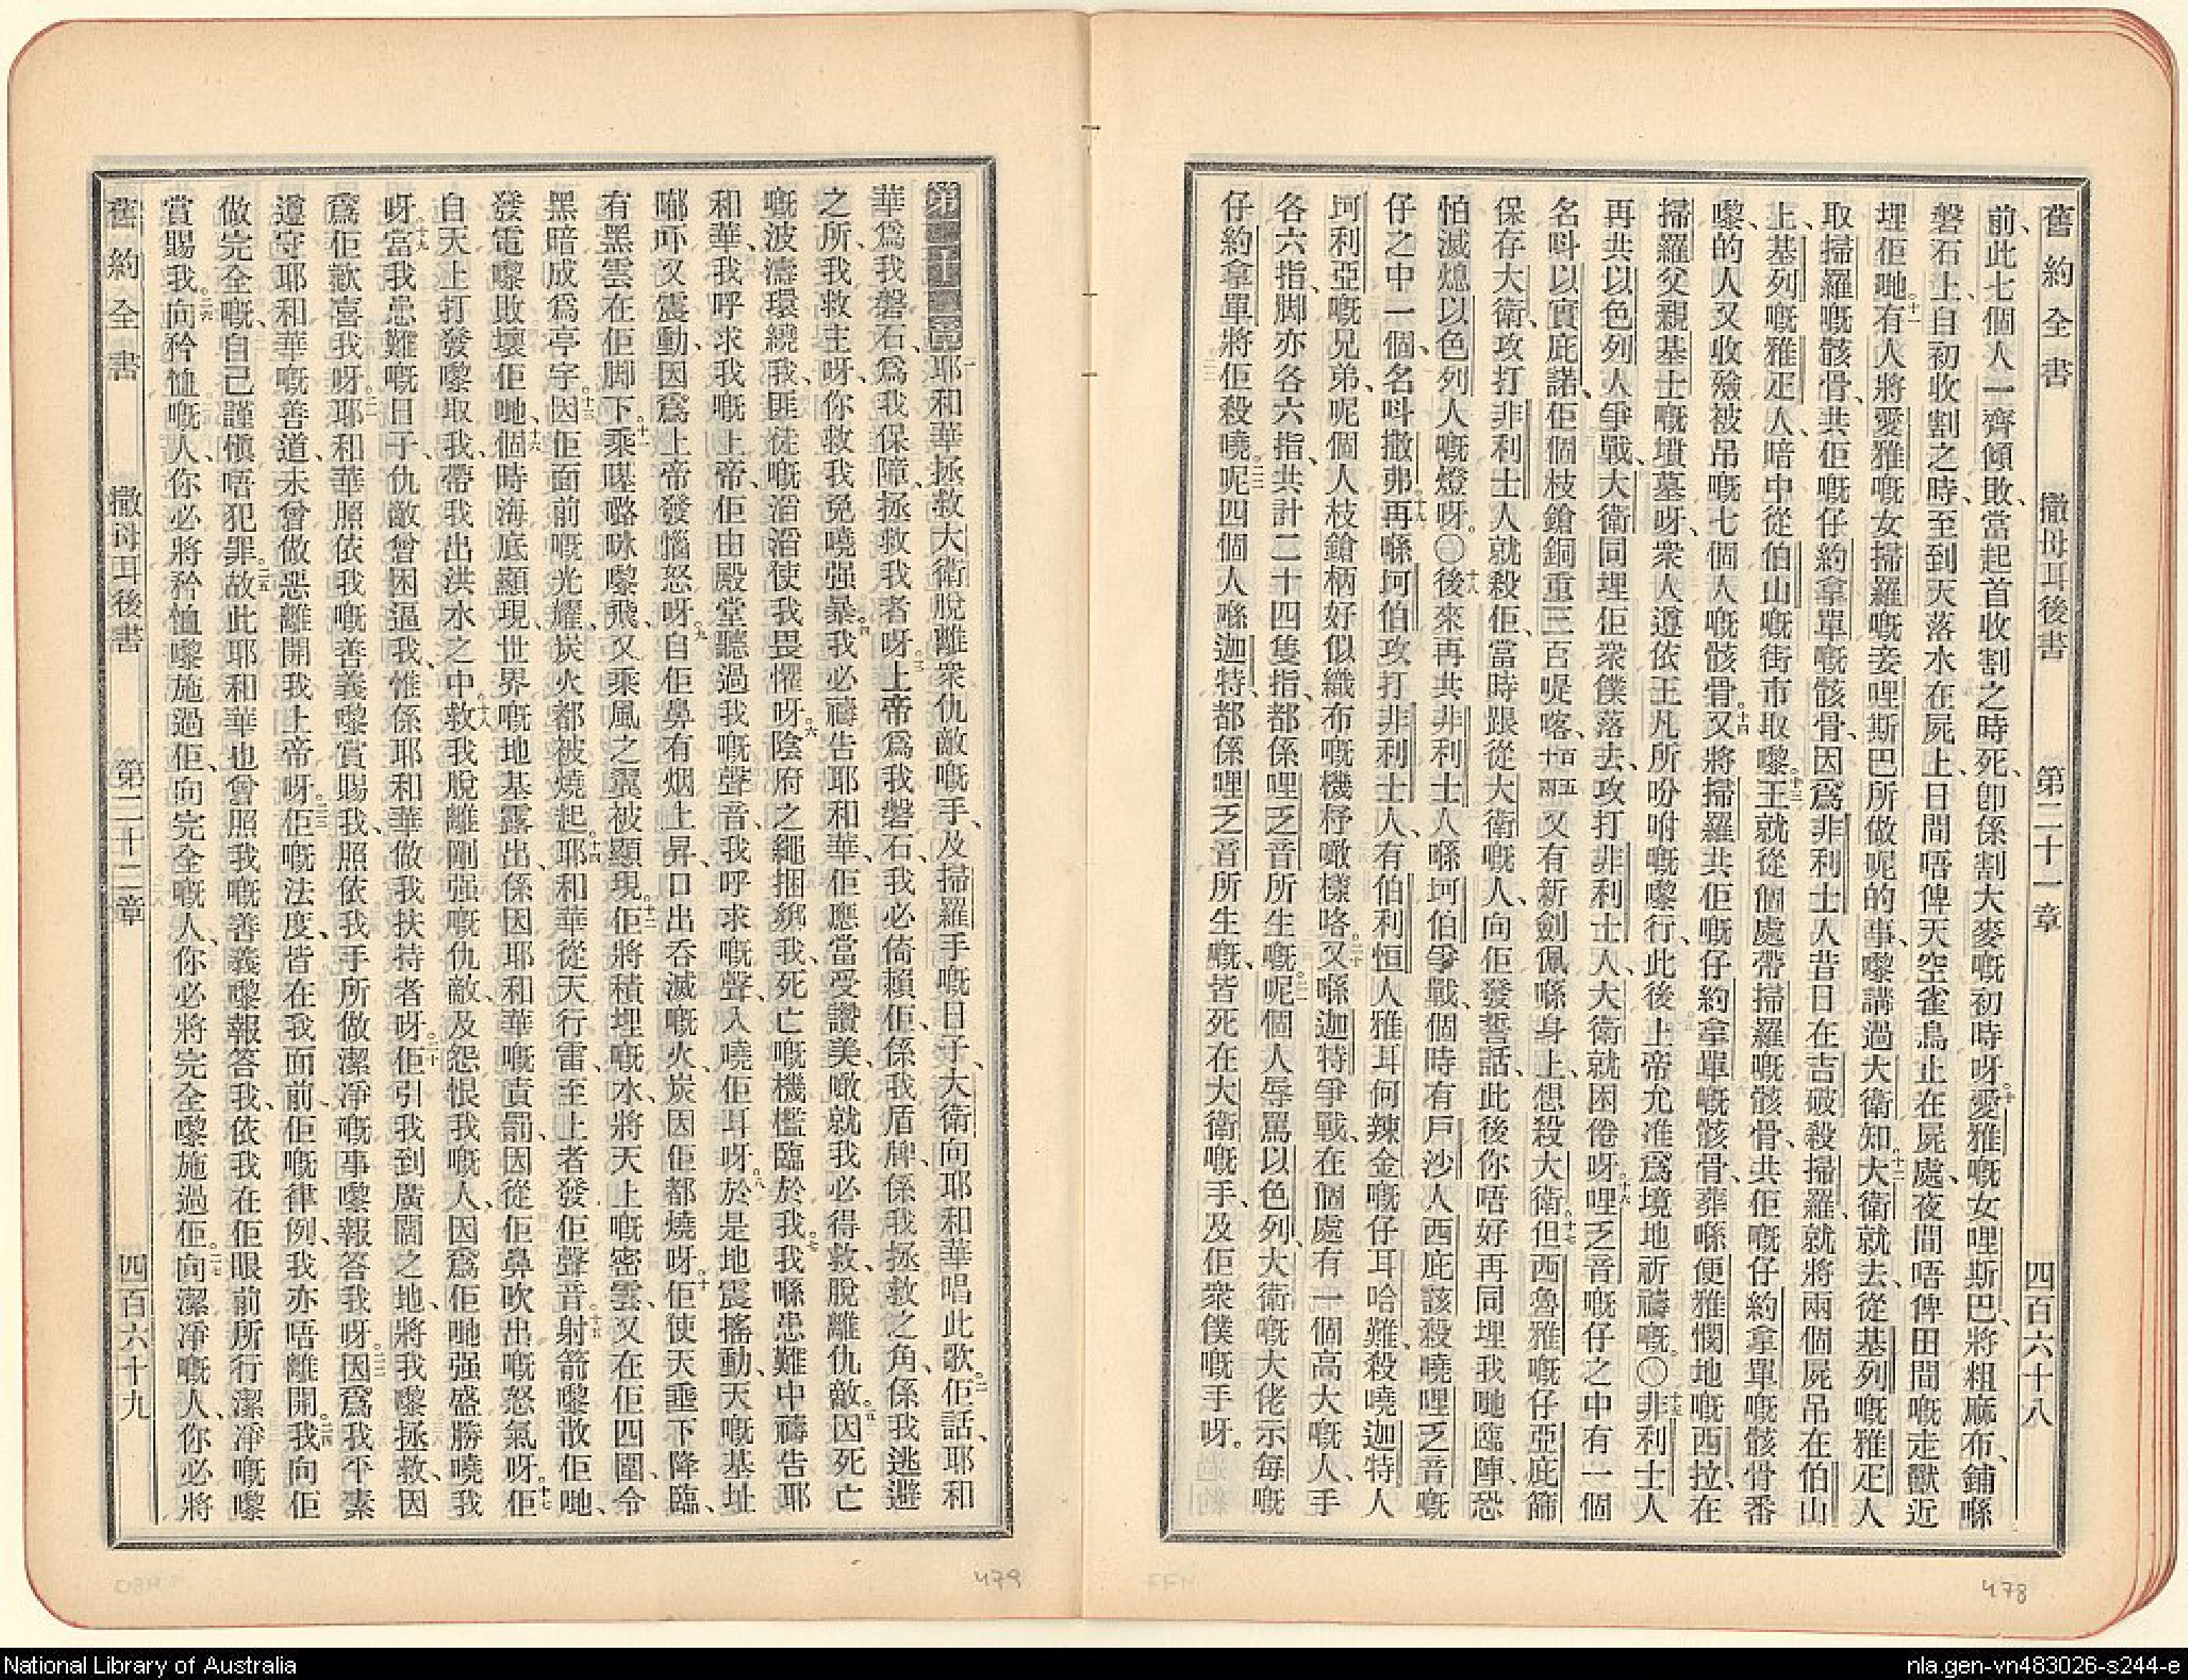 舊約全書　撒母耳後書　第二十一章　四百六十八
前、此七個人一齊傾敗、當起首收割之時死、卽係割大麥嘅初時呀。十愛雅嘅女哩斯巴、將粗麻布、鋪喺
磐石上、自初收割之時、至到天落水在屍上、日間唔俾天空雀鳥止在屍處、夜間唔俾田間嘅走獸近
埋佢哋。十一有人將愛雅嘅女掃羅嘅妾哩斯巴所做呢的事、嚟講過大衛知。十二大衛就去、從基列嘅雅疋人
取掃羅嘅骸骨、共佢嘅仔約拿單嘅骸骨、因爲非利士人昔日在吉破殺掃羅、就將兩個屍吊在伯山
上、基列嘅雅疋人、暗中從伯山嘅街市取嚟。十三王就從個處帶掃羅嘅骸骨、共佢嘅仔約拿單嘅骸骨番
嚟、的人又收殮被吊嘅七個人嘅骸骨。十四又將掃羅共佢嘅仔約拿單嘅骸骨、葬喺便雅憫地嘅西拉、在
掃羅父親基士嘅墳墓呀、衆人遵依王凡所吩咐嘅嚟行、此後上帝允准爲境地祈禱嘅。〇十五非利士人
再共以色列人爭戰、大衛同埋佢衆僕落去、攻打非利士人、大衛就困倦呀。十六哩乏音嘅仔之中有一個
名呌以實庇諾、佢個枝鎗銅重三百㖷喀、百五十兩又有新劍佩喺身上、想殺大衛。十七但西魯雅嘅仔亞庇篩
保存大衛、攻打非利士人就殺佢、當時跟從大衛嘅人、向佢發誓話、此後你唔好再同埋我哋臨陣、恐
怕滅熄以色列人嘅燈呀。〇十八後來再共非利士人喺坷伯爭戰、個時有戶沙人西庇該殺曉哩乏音嘅
仔之中一個、名呌撒弗。十九再喺坷伯攻打非利士人、有伯利恒人雅耳何辣金嘅仔耳哈難、殺曉迦特人
坷利亞嘅兄弟、呢個人枝鎗柄好似織布嘅機杼噉樣咯。二十又喺迦特爭戰、在個處有一個高大嘅人、手
各六指、脚亦各六指、共計二十四隻指、都係哩乏音所生嘅。二一呢個人辱罵以色列、大衛嘅大佬示每嘅
仔約拿單將佢殺曉。二二呢四個人喺迦特、都係哩乏音所生嘅、皆死在大衛嘅手、及佢衆僕嘅手呀。
478
第二十二章一耶和華拯救大衛脫離衆仇敵嘅手、及掃羅手嘅日子、大衛向耶和華唱此歌。二佢話、耶和
華爲我磐石、爲我保障、拯救我者呀。三上帝爲我磐石、我必倚賴佢、係我盾牌、係我拯救之角、係我逃避
之所、我救主呀、你救我免曉强暴。四我必禱告耶和華、佢應當受讚美、噉就我必得救、脫離仇敵。五因死亡
嘅波濤環繞我、匪徒嘅滔滔使我畏懼呀。六陰府之繩捆綁我、死亡嘅機檻臨於我。七我喺患難中禱告耶
和華、我呼求我嘅上帝、佢由殿堂聽過我嘅聲音、我呼求嘅聲、入曉佢耳呀。八於是地震搖動、天嘅基址
嘟吓又震動、因爲上帝發惱怒呀。九自佢鼻有烟上昇、口出吞滅嘅火、炭因佢都燒呀。十佢使天垂下降臨、
有黑雲在佢脚下。十一乘㗎咯咏嚟飛、又乘風之翼被顯現。十二佢將積埋嘅水、將天上嘅密雲、又在佢四圍、令
黑暗成爲亭宇。十三因佢面前嘅光耀、炭火都被燒起。十四耶和華從天行雷、至上者發佢聲音。十五射箭嚟散佢哋、
發電嚟敗壞佢哋。十六個時海底顯現、世界嘅地基露出、係因耶和華嘅責罰、因從佢鼻吹出嘅怒氣呀。十七佢
自天上打發嚟取我、帶我出洪水之中。十八救我脫離剛强嘅仇敵、及怨恨我嘅人、因爲佢哋强盛勝曉我
呀。十九當我患難嘅日子、仇敵曾困逼我、惟係耶和華做我扶持者呀。二十佢引我到廣闊之地、將我嚟拯救、因
爲佢歡喜我呀。二一耶和華照依我嘅善義嚟賞賜我、照依我手所做潔淨嘅事嚟報答我呀。二二因爲我平素
遵守耶和華嘅善道、未曾做惡離開我上帝呀。二三佢嘅法度、皆在我面前、佢嘅律例、我亦唔離開。二四我向佢
做完全嘅、自己謹愼唔犯罪。二五故此耶和華也會照我嘅善義嚟報答我、依我在佢眼前所行潔凈嘅嚟
賞賜我。二六向矜恤嘅人、你必將矜恤嚟施過佢、向完全嘅人、你必將完全嚟施過佢。二七向潔凈嘅人、你必將
舊約全書　撒母耳後書　第二十二章　四百六十九
479
National Library of Australia
nla.gen-vn483026-s244-e